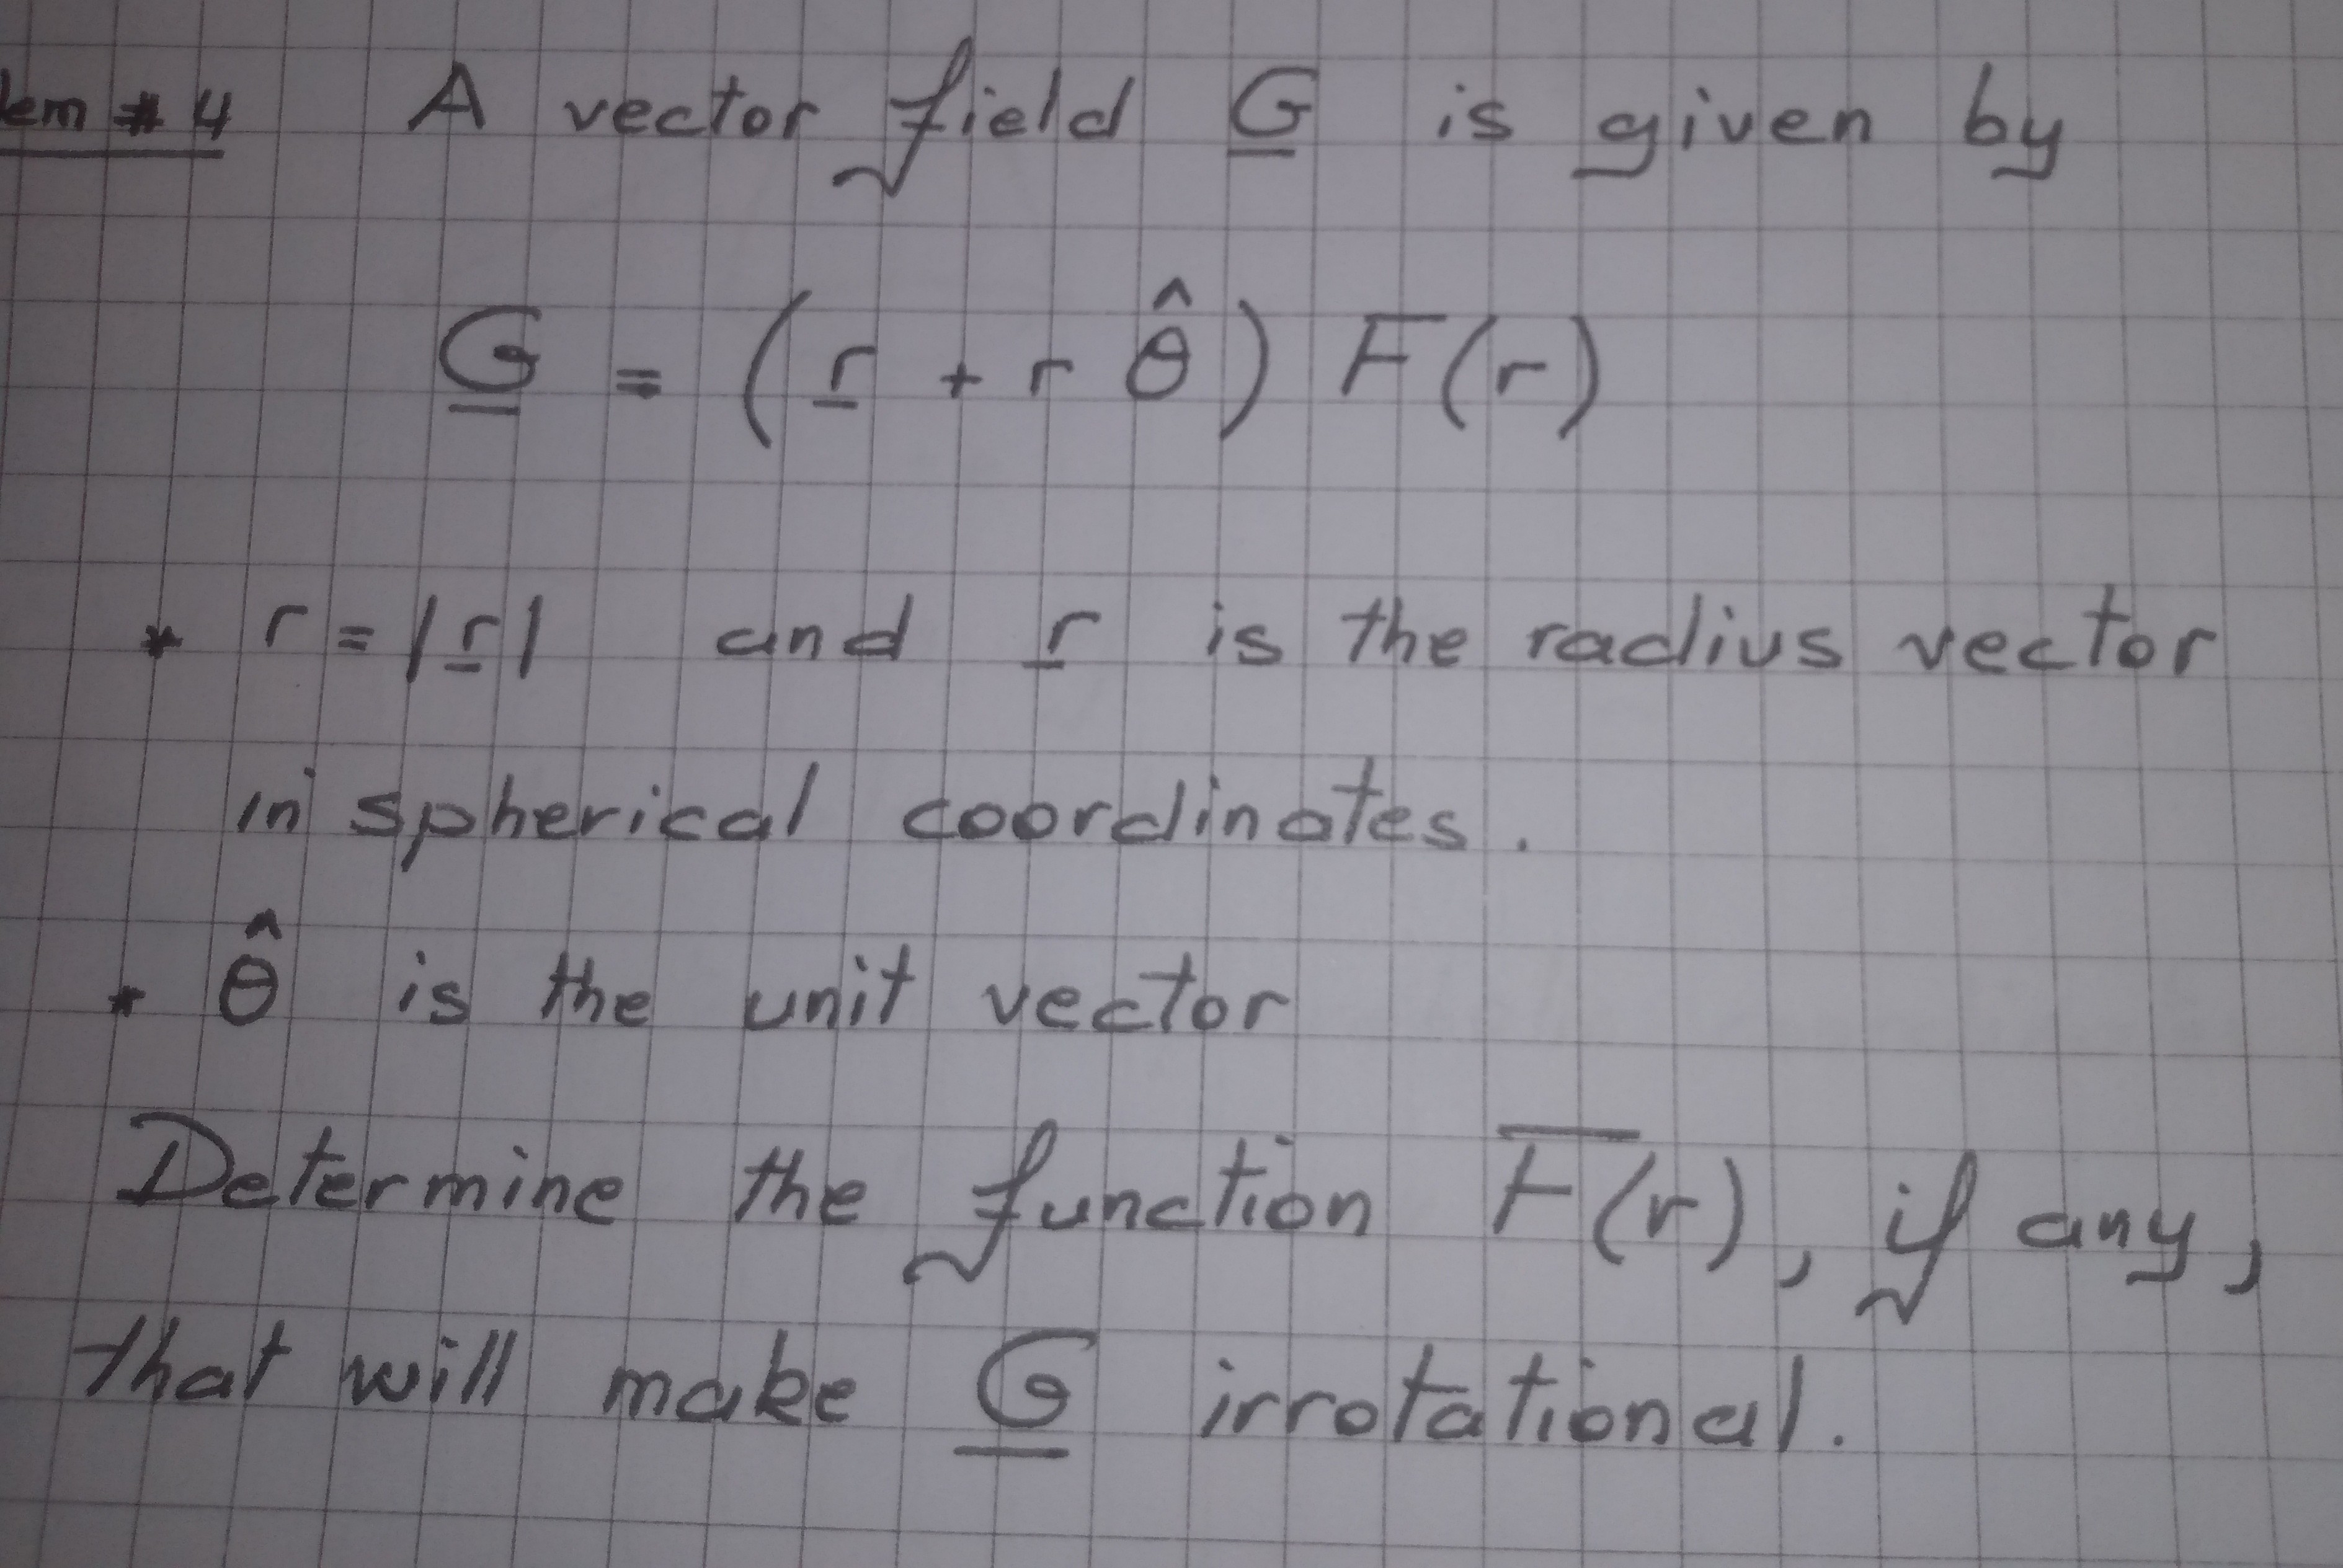 lem # 4 A vector field G is given by
G = (r + r θ̂) F(r)
* r = |r| and r is the radius vector
in spherical coordinates.
* θ̂ is the unit vector
Determine the function F(r), if any,
that will make G irrotational.